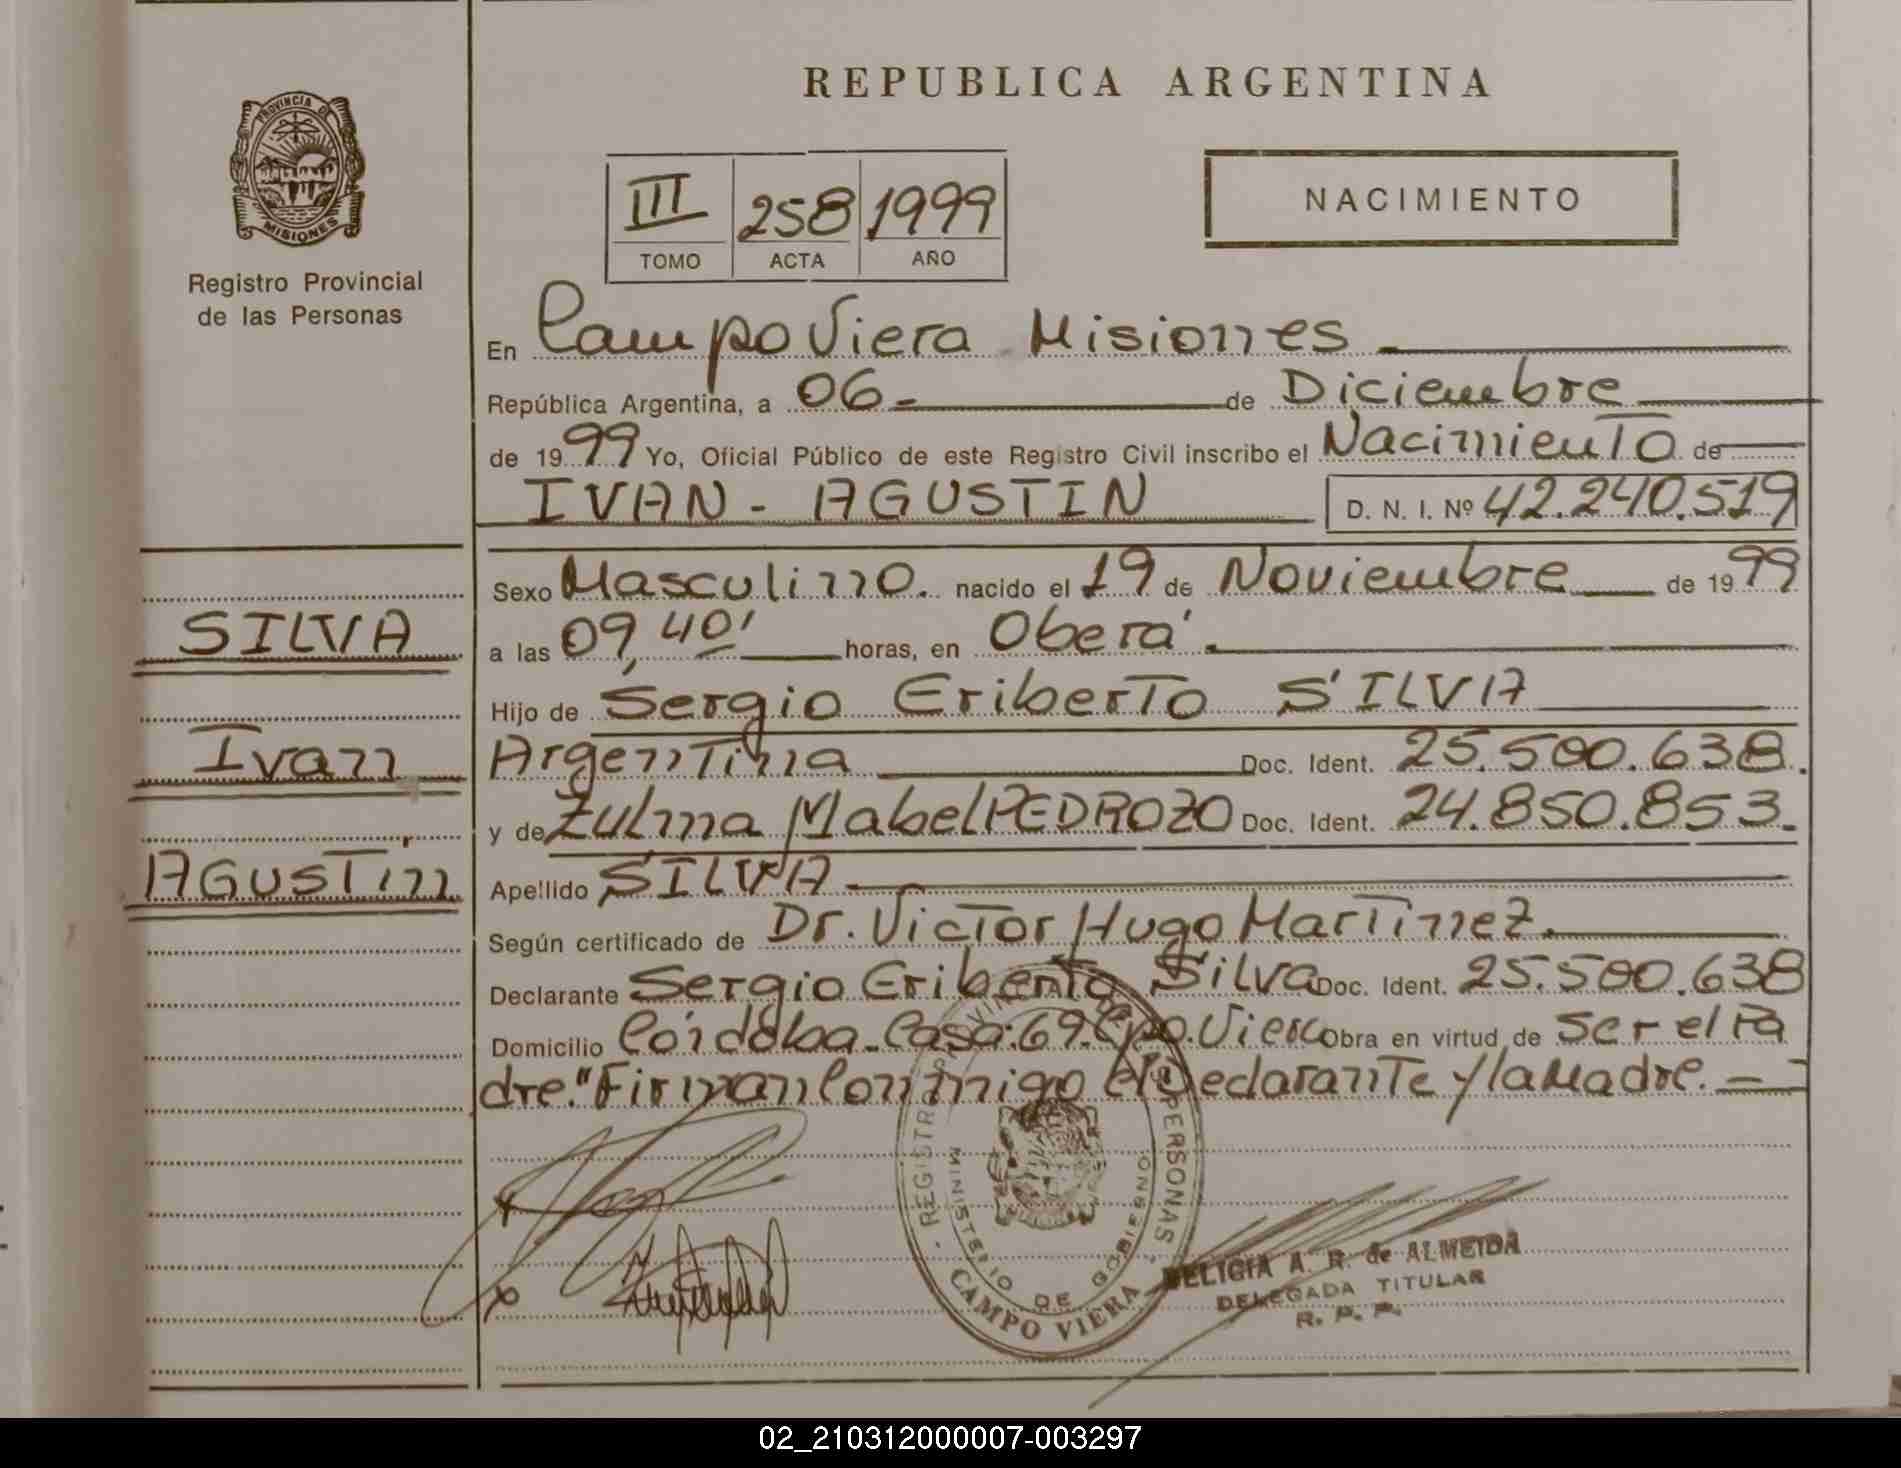 REPUBLICA ARGENTINA
PROVINCIA DE MISIONES
Registro Provincial
de las Personas
NACIMIENTO
III 258 1999
TOMO ACTA AÑO
En Campo Viera Misiones
República Argentina, a 06 de Diciembre
de 1999 Yo, Oficial Público de este Registro Civil inscribo el Nacimiento de
IVAN - AGUSTIN D. N. I. Nº 42.240.519
Sexo Masculino. nacido el 19 de Noviembre de 1999
SILVA
a las 09,40' horas, en Oberá.
Hijo de Sergio Eriberto SILVA
Ivan
Argentina Doc. Ident. 25.500.638.
y de Zulma Mabel PEDROZO Doc. Ident. 24.850.853.
AGUSTín
Apellido SILVA
Según certificado de Dr. Victor Hugo Martinez.
Declarante Sergio Eriberto Silva Doc. Ident. 25.500.638
Domicilio Córdoba. Casa: 69. Cpo. Viera Obra en virtud de ser el Pa
dre." Firman Conmigo el Declarante y la Madre.
REGISTRO PROVINCIAL DE LAS PERSONAS
MINISTERIO DE GOBIERNO
CAMPO VIERA
DELICIA A. R. de ALMEIDA
DELEGADA TITULAR
R. P. P.
02_210312000007-003297